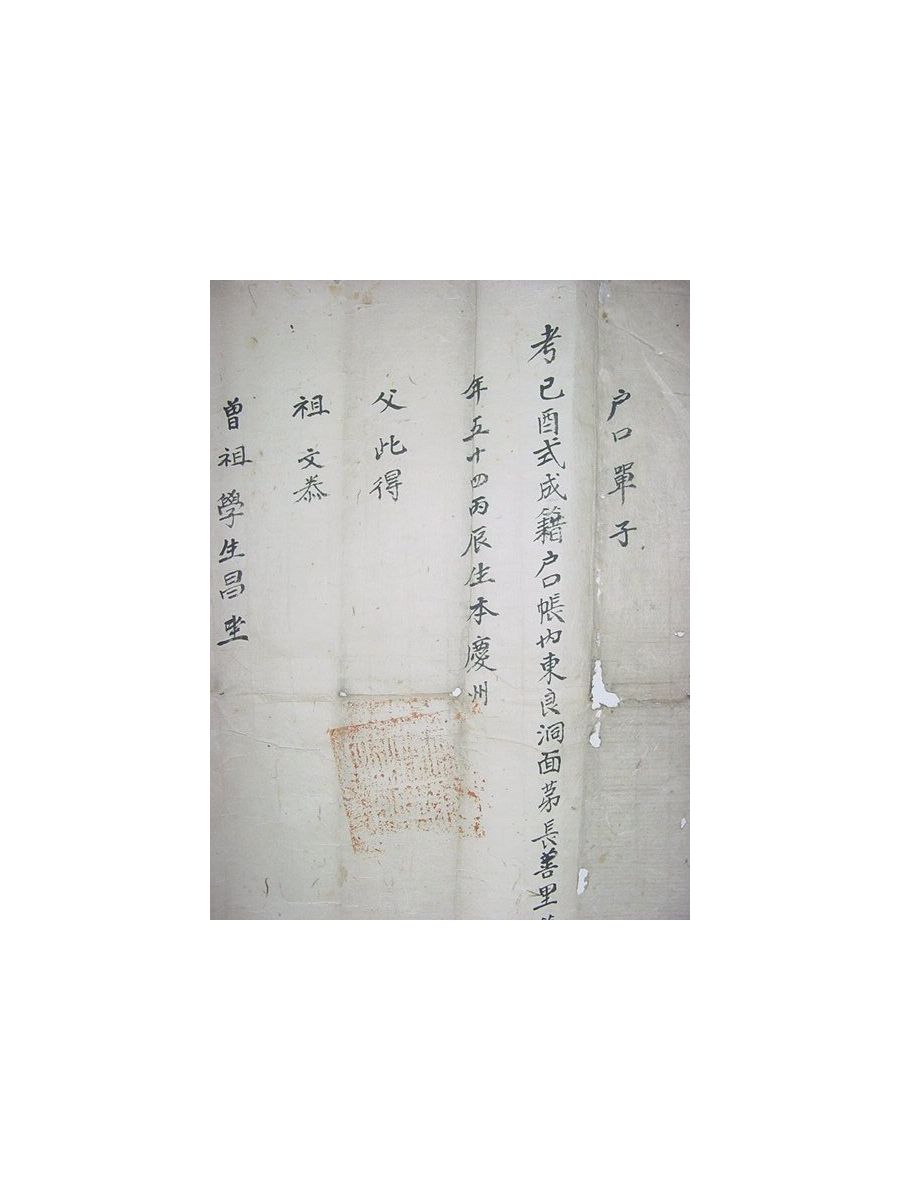 户口單子
考己酉式成籍户口帳內東良洞面第長善里第
年五十四丙辰生本慶州
父此得
祖文恭
曾祖學生昌坐